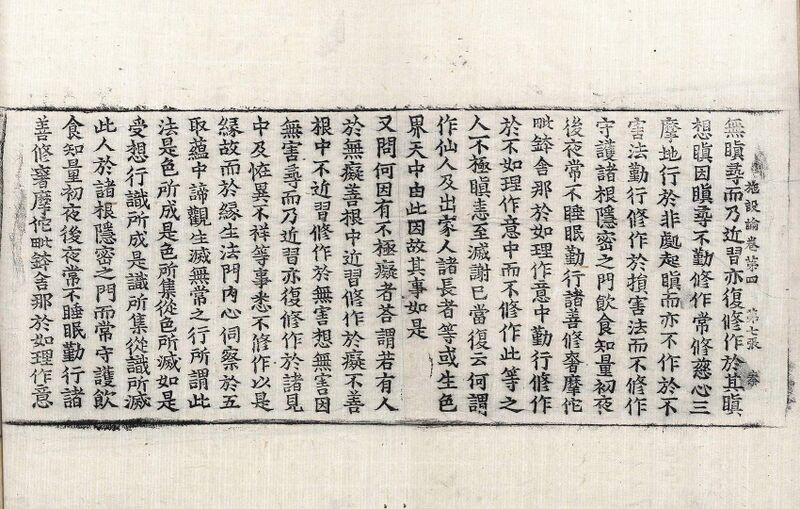 施設論卷第四 第七張
無瞋尋而乃近習亦復修作於其瞋
想瞋因瞋尋不勤修作常修慈心三
摩地行於非處起瞋而亦不作於不
害法勤行修作於損害法而不修作
守護諸根隱密之門飲食知量初夜
後夜常不睡眠勤行諸善修奢摩佗
毗鉢舍那於如理作意中勤行修作
於不如理作意中而不修作此等之
人不極瞋恚至滅謝已當復云何謂
作仙人及出家人諸長者等或生色
界天中由此因故其事如是
又問何因有不極癡者荅謂若有人
於無癡善根中近習修作於癡不善
根中不近習修作於無害想無害因
無害尋而乃近習亦復修作於諸見
中及恠異不祥等事悉不修作以是
緣故而於緣生法門內心伺察於五
取蘊中諦觀生滅無常之行所謂此
法是色所成是色所集從色所滅如是
受想行識所成是識所集從識所滅
此人於諸根隱密之門而常守護飲
食知量初夜後夜常不睡眠勤行諸
善修奢摩佗毗鉢舍那於如理作意